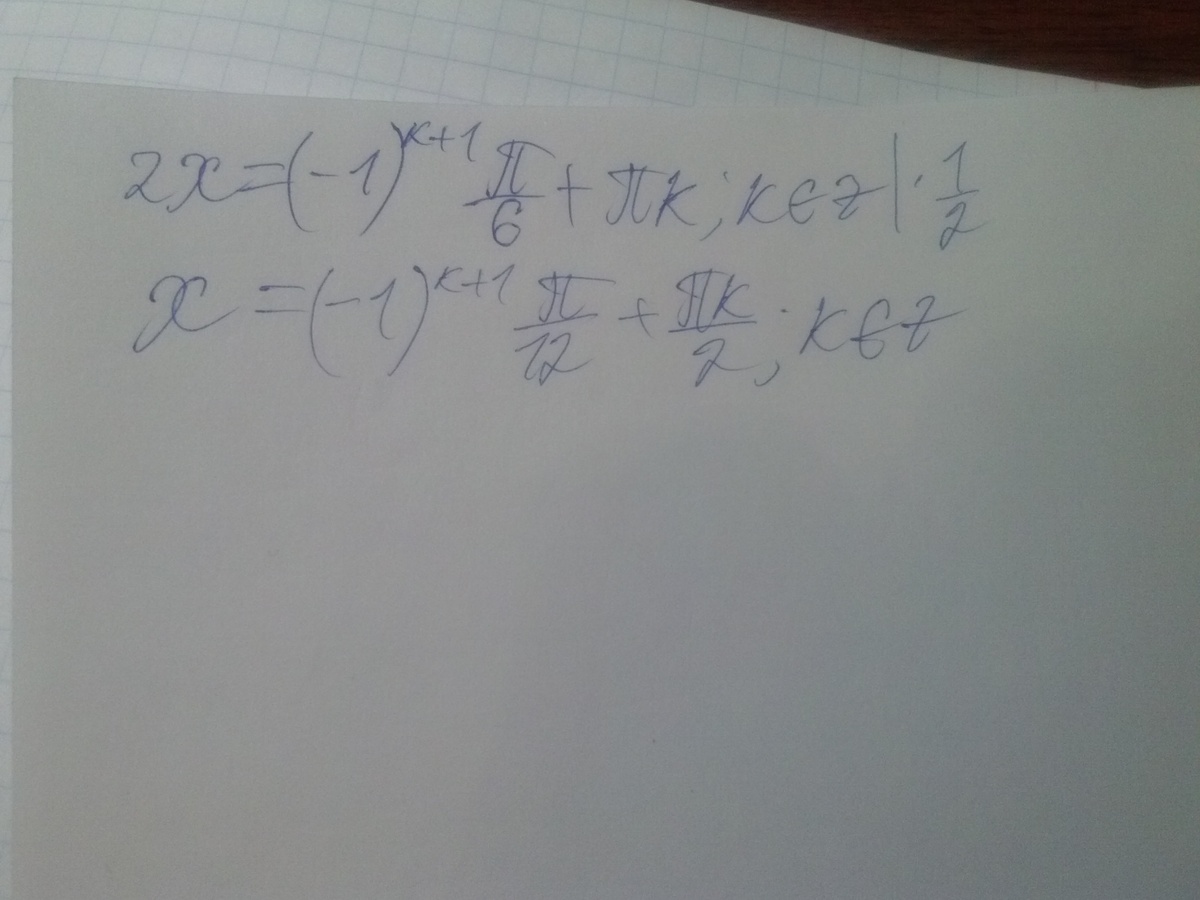 2x=(-1)^{k+1} π/6 + πk; k∈z | · 1/2
x=(-1)^{k+1} π/12 + πk/2; k∈z